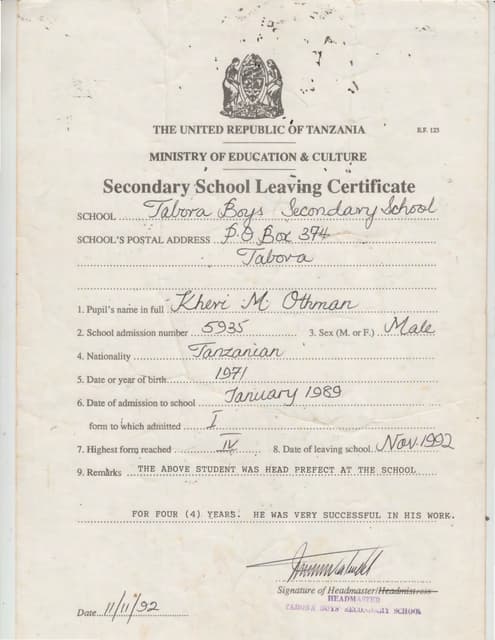 THE UNITED REPUBLIC OF TANZANIA
E.F. 123
MINISTRY OF EDUCATION & CULTURE
Secondary School Leaving Certificate
SCHOOL Tabora Boys Secondary School
SCHOOL'S POSTAL ADDRESS P.O Box 374
Tabora
1. Pupil's name in full Kheri M. Othman
2. School admission number 5935 3. Sex (M. or F.) Male
4. Nationality Tanzanian
5. Date or year of birth 1971
6. Date of admission to school January 1989
form to which admitted I
7. Highest form reached IV 8. Date of leaving school Nov. 1992
9. Remarks THE ABOVE STUDENT WAS HEAD PREFECT AT THE SCHOOL
FOR FOUR (4) YEARS. HE WAS VERY SUCCESSFUL IN HIS WORK.
Signature of Headmaster/Headmistress
HEADMASTER
TABORA BOYS' SECONDARY SCHOOL
Date 11/11/92